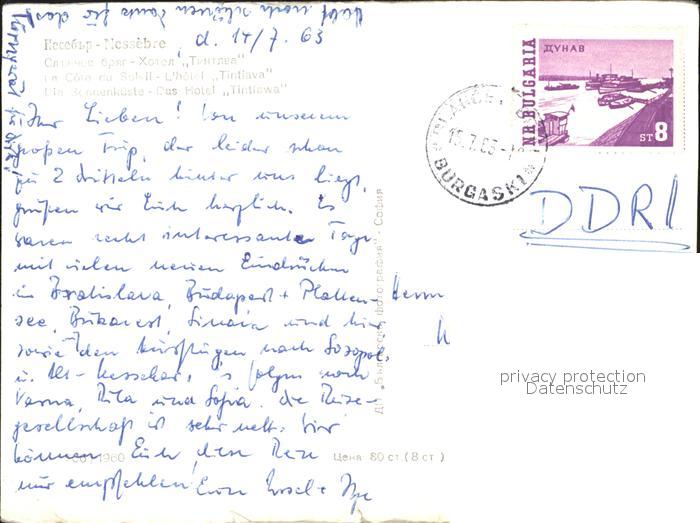 Habt noch schönen Dank für das
Несебър - Nessèbre, d. 14/7. 63
Слънчев бряг - Хотел „Тинтява"
La Côte du Soleil - L'hôtel „Tintiava"
Die Sonnenküste - Das Hotel „Tintiawa"
Ihr Lieben! Von unserem
großen Trip, der leider schon
zu 2 Dritteln hinter uns liegt,
grüßen wir Euch herzlich. Es
waren recht interessante Tage
mit vielen neuen Eindrücken
in Bratislava, Budapest + Platten-
see, Bukarest, Sinaia und hier
sowie den Ausflügen nach Sozopol
u. Alt-Nessebar, 's folgen noch
Varna, Rila und Sofia. Die Reise-
gesellschaft ist sehr nett. Wir
können Euch diese Reise
nur empfehlen! Eure
ДП „Българска фотография" - София
1960
Цена 80 ст. (8 ст)
ДУНАВ
NR. BULGARIA
ST 8
BURGASKI
DDR!
Herrn
privacy protection
Datenschutz